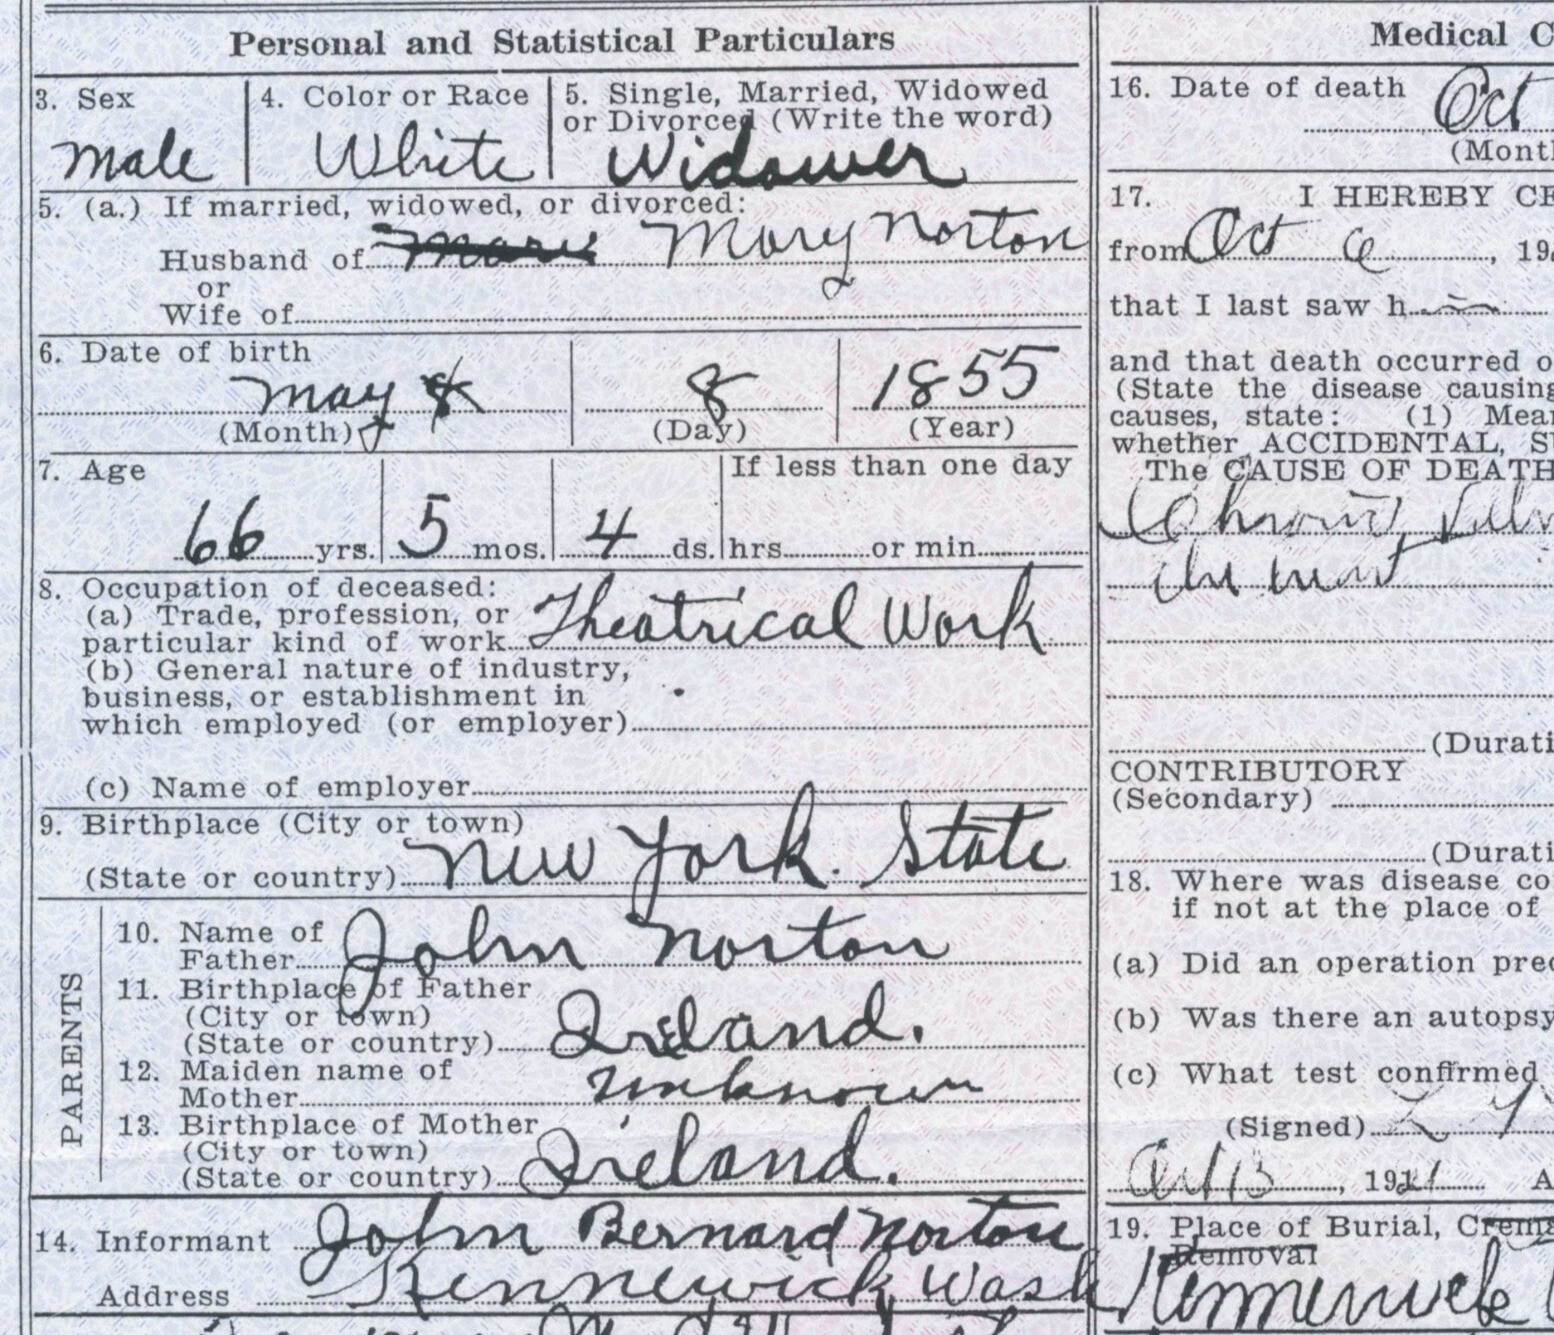 Personal and Statistical Particulars
3. Sex
male
4. Color or Race
White
5. Single, Married, Widowed
or Divorced (Write the word)
Widower
5. (a.) If married, widowed, or divorced:
Husband of Mary Norton
or
Wife of
6. Date of birth
may 8 8 1855
(Month) (Day) (Year)
7. Age
If less than one day
66 yrs. 5 mos. 4 ds. hrs or min
8. Occupation of deceased:
(a) Trade, profession, or
particular kind of work Theatrical Work
(b) General nature of industry,
business, or establishment in
which employed (or employer)
(c) Name of employer
9. Birthplace (City or town)
(State or country) New York. State
PARENTS
10. Name of
Father John Norton
11. Birthplace of Father
(City or town)
(State or country) Ireland.
12. Maiden name of
Mother unknown
13. Birthplace of Mother
(City or town)
(State or country) Ireland.
14. Informant John Bernard Norton
Address Kennewick Wash
Medical C
16. Date of death Oct
(Month
17. I HEREBY CE
from Oct 6, 19
that I last saw h
and that death occurred o
(State the disease causing
causes, state: (1) Mean
whether ACCIDENTAL, SU
The CAUSE OF DEATH
Chronic
(Durati
CONTRIBUTORY
(Secondary)
(Durati
18. Where was disease co
if not at the place of
(a) Did an operation prec
(b) Was there an autopsy
(c) What test confirmed
(Signed)
Oct 13, 1921 A
19. Place of Burial, Crema
Removal
Kennewick